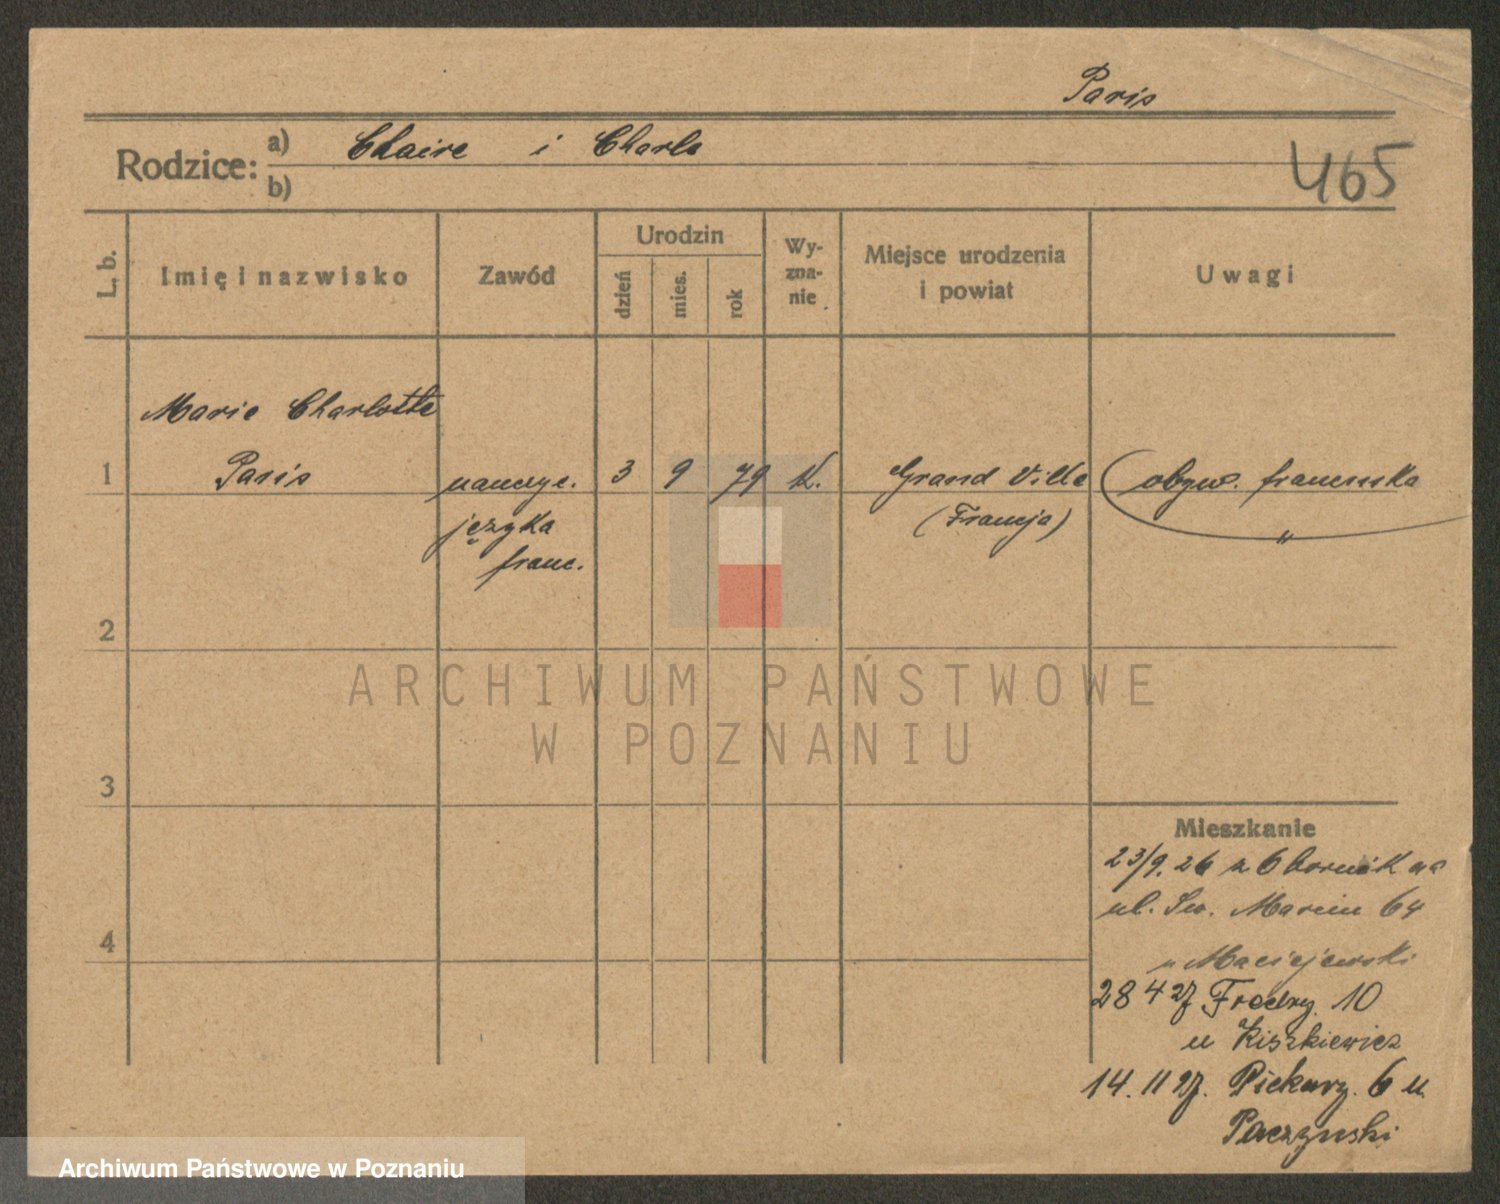 Paris
Rodzice: a) Claire i Charle
b)
465
L. b.
Imię i nazwisko
Zawód
Urodzin
dzień
mies.
rok
Wy-
zna-
nie
Miejsce urodzenia
i powiat
Uwagi
Marie Charlotte
1 Paris nauczyc. 3 9 79 K. Grand Ville (obyw. francuska
języka (Francja) "
franc.
2
3
4
ARCHIWUM PAŃSTWOWE
W POZNANIU
Mieszkanie
23/9. 26 z Obornik na
ul. Św. Marcin 64
u Maciejewski
28 4 27 Fredry 10
u Kiszkiewicz
14. 11 27. Piekary. 6 u
Paczyński
Archiwum Państwowe w Poznaniu